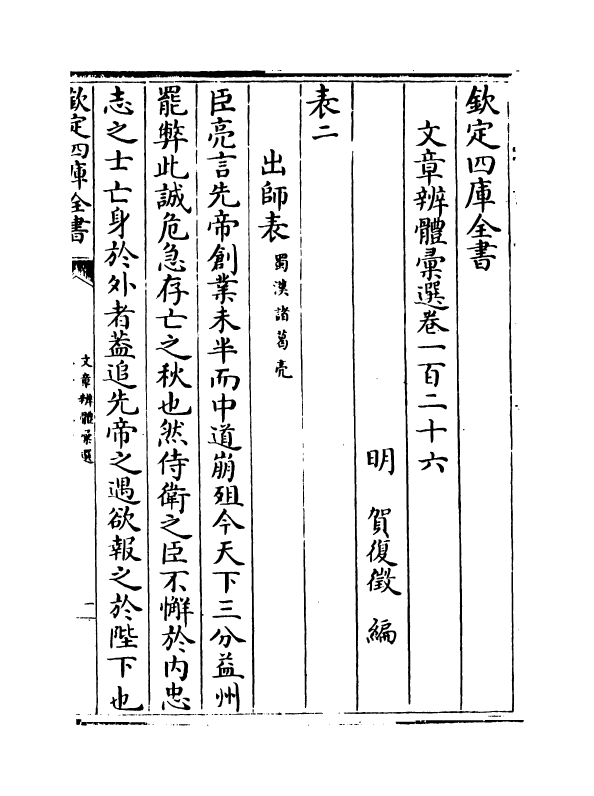 欽定四庫全書
文章辨體彚選卷一百二十六
明　賀復徵　編
表二
出師表蜀漢諸葛亮
臣亮言先帝創業未半而中道崩殂今天下三分益州
罷弊此誠危急存亡之秋也然侍衛之臣不懈於內忠
志之士亡身於外者葢追先帝之遇欲報之於陛下也
欽定四庫全書
文章辨體彚選
一